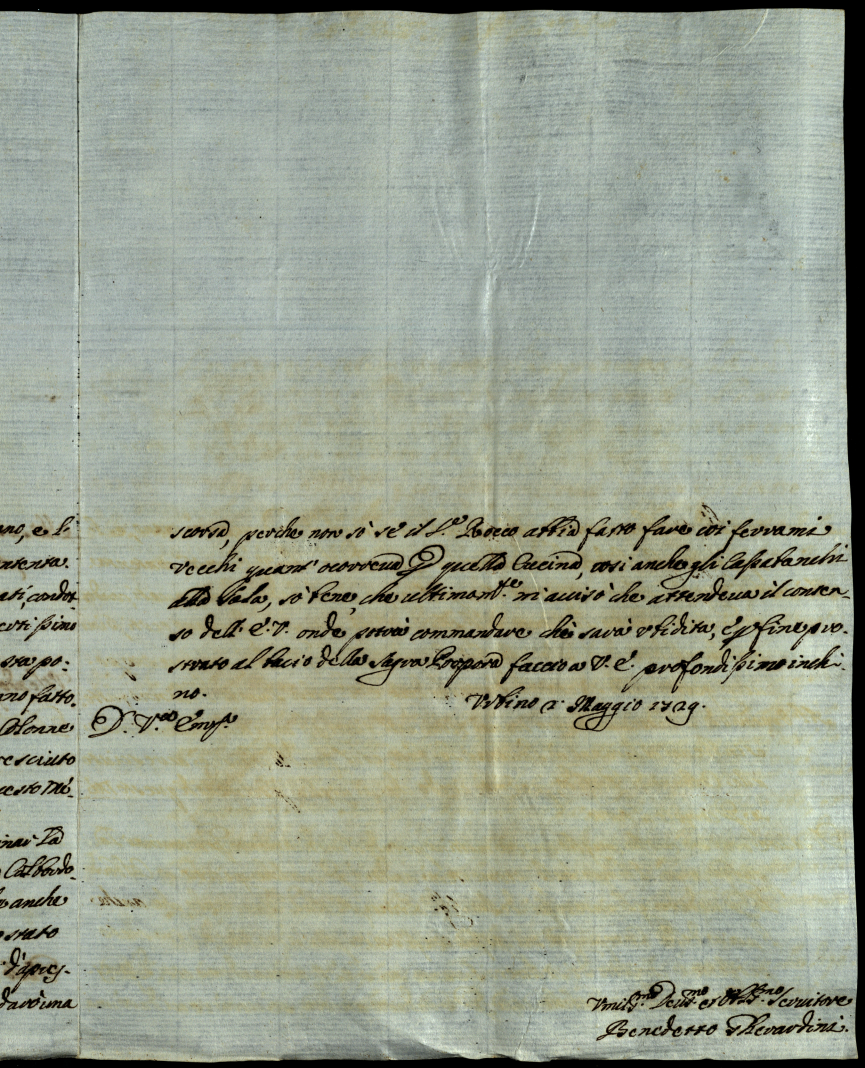 no, e li
ntenta
ati, condot
certissimo
sta po-
no fatto.
Colonne
cresciuto
uesto Me-
nar La
Calbordo
anche
stato
d'apres-
darò una
scorsa, perche non sò sè il S.r Rocco abbia fatto fare coi ferrami
vecchi quant' ocorreva p quella Cucina, così anche gli Cassabanchi
alla Sala, sò bene, che ultimam.te m'avisò che attendeva il consen-
so dell' E. V. onde potrà commandare che sarà ubidita, e p fine pro-
strato al bacio della Sagra Porpora faccio a V. E. profondissimo inchi-
no.
Urbino 1 Maggio 1729.
D. V.ra Em.za
Umiliss.mo Devot.mo et Obb.mo Servitore
Benedetto Gherardini.